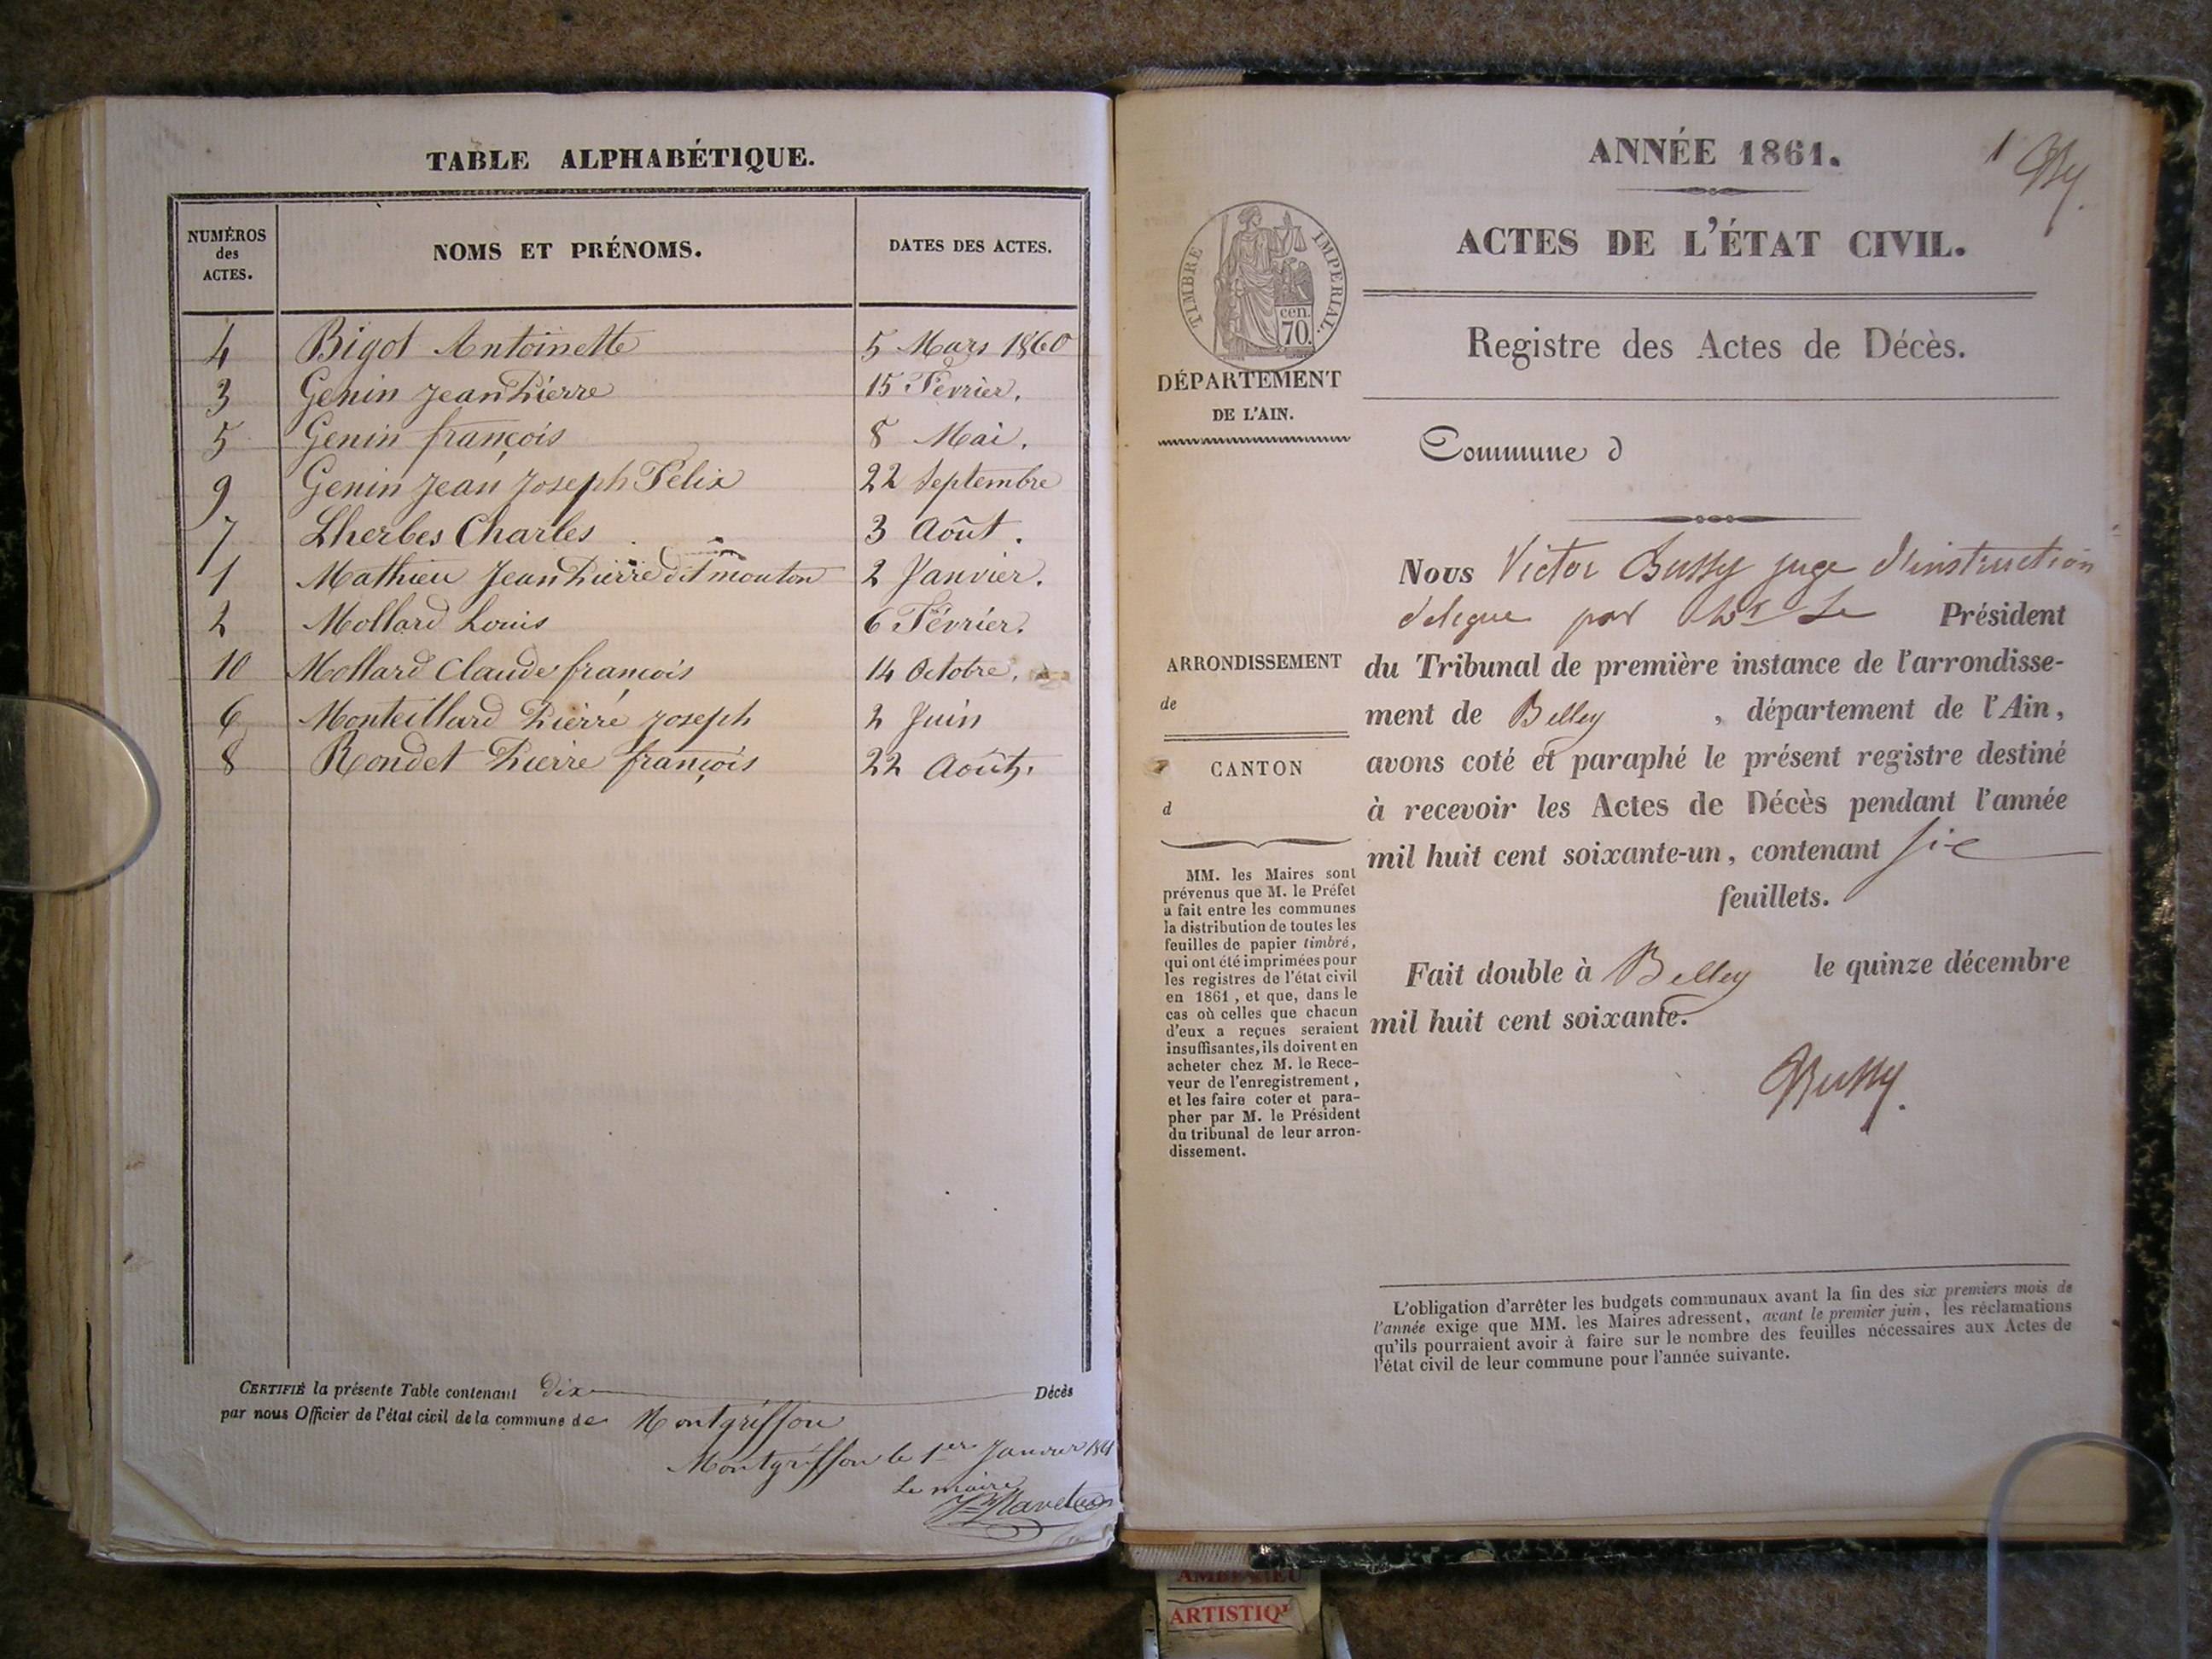 TABLE ALPHABÉTIQUE.
NUMÉROS des ACTES. NOMS ET PRÉNOMS. DATES DES ACTES.
4 Bigot Antoinette 5 Mars 1860
3 Genin Jean Pierre 15 Février.
5 Genin françois 8 Mai.
9 Genin Jean Joseph Félix 22 Septembre
7 Lherbes Charles 3 Août.
1 Mathieu Jean Pierre dit mouton 2 Janvier.
2 Mollard Louis 6 Février.
10 Mollard Claude françois 14 Octobre.
6 Monteillard Pierre Joseph 2 Juin
8 Rondet Pierre françois 22 Août.
CERTIFIÉ la présente Table contenant dix Décès
par nous Officier de l'état civil de la commune de Montgriffon
Montgriffon le 1er Janvier 1861
Le maire
ANNÉE 1861.
1
ACTES DE L'ÉTAT CIVIL.
TIMBRE IMPERIAL.
cen.
70.
Registre des Actes de Décès.
DÉPARTEMENT
DE L'AIN.
Commune d
Nous Victor Bussy juge d'instruction
délégué par Mr Le Président
du Tribunal de première instance de l'arrondisse-
ment de Belley, département de l'Ain,
avons coté et paraphé le présent registre destiné
à recevoir les Actes de Décès pendant l'année
mil huit cent soixante-un, contenant six
feuillets.
Fait double à Belley le quinze décembre
mil huit cent soixante.
Bussy.
ARRONDISSEMENT
de
CANTON
d
MM. les Maires sont
prévenus que M. le Préfet
a fait entre les communes
la distribution de toutes les
feuilles de papier timbré,
qui ont été imprimées pour
les registres de l'état civil
en 1861, et que, dans le
cas où celles que chacun
d'eux a reçues seraient
insuffisantes, ils doivent en
acheter chez M. le Rece-
veur de l'enregistrement,
et les faire coter et para-
pher par M. le Président
du tribunal de leur arron-
dissement.
L'obligation d'arrêter les budgets communaux avant la fin des six premiers mois de
l'année exige que MM. les Maires adressent, avant le premier juin, les réclamations
qu'ils pourraient avoir à faire sur le nombre des feuilles nécessaires aux Actes de
l'état civil de leur commune pour l'année suivante.
ARTISTIQ